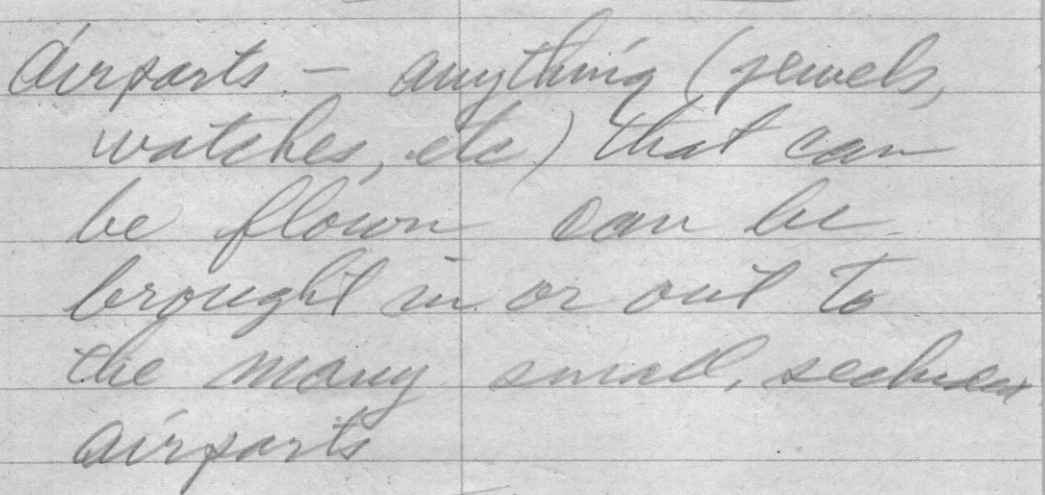 Airports - anything (jewels,
watches, etc) that can
be flown can be
brought in or out to
the many small, secluded
airports